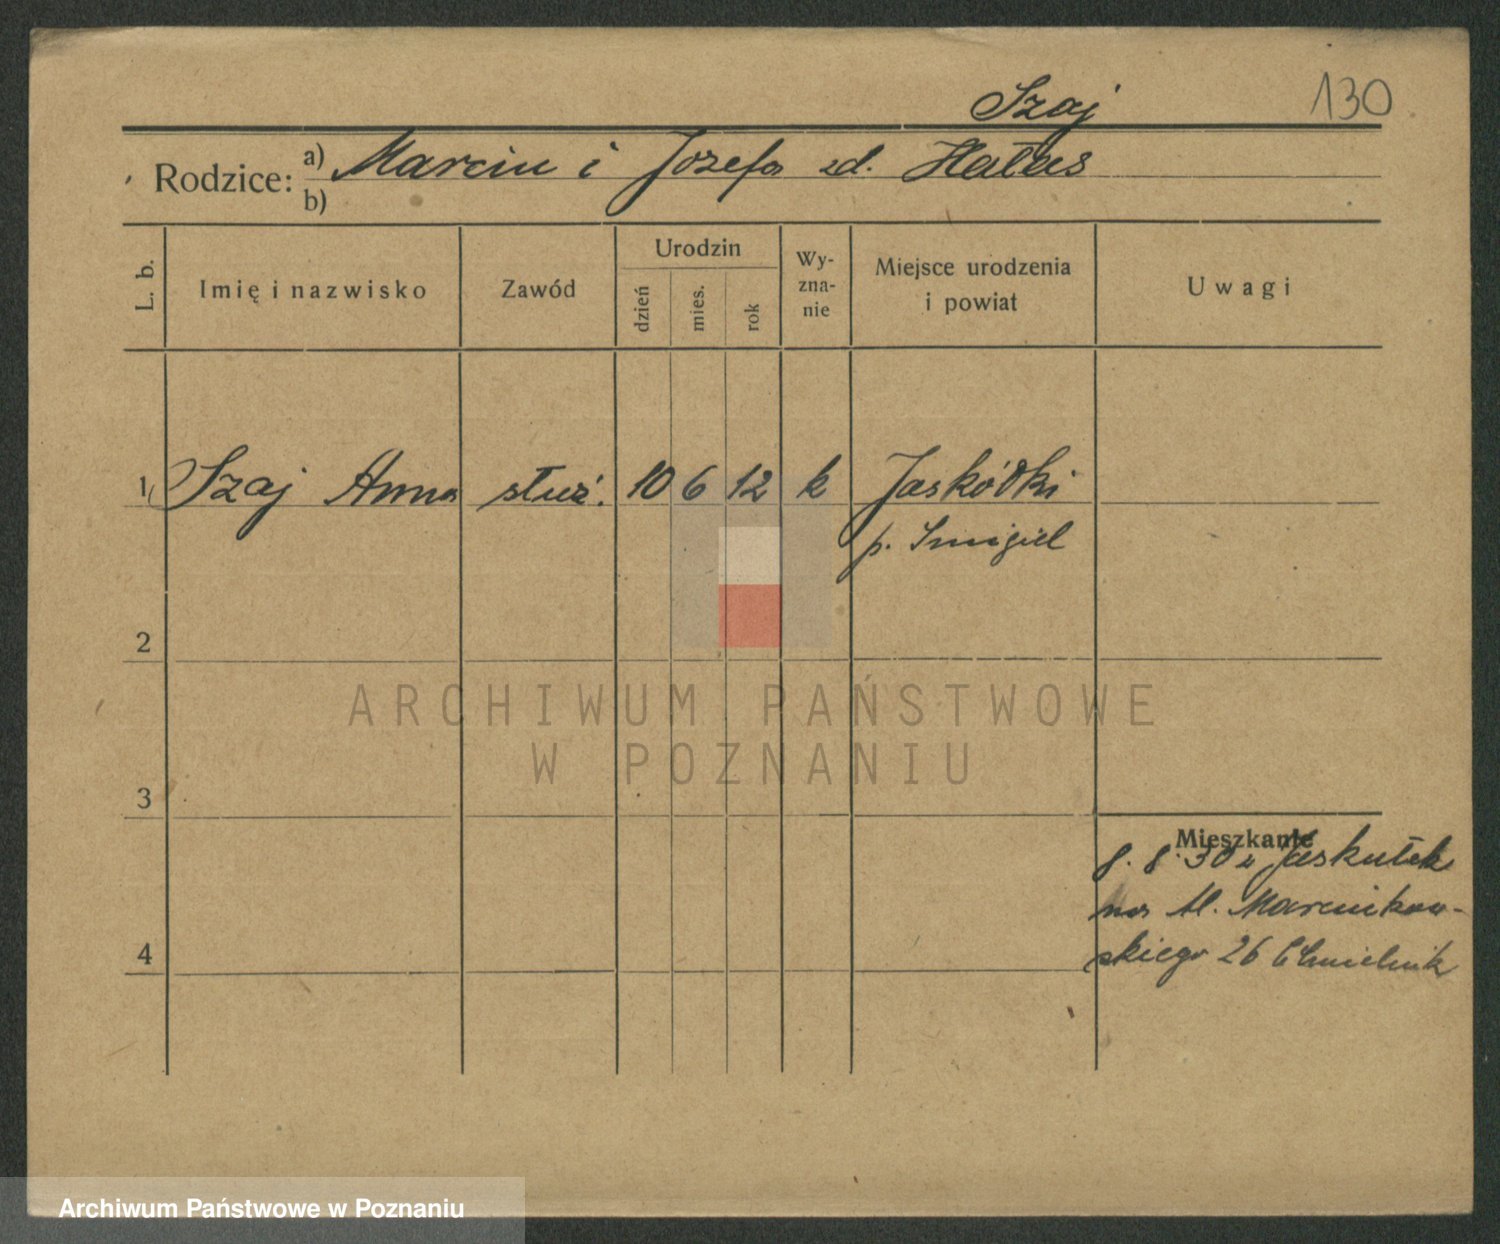 Szaj
130
Rodzice: a) Marcin i Józefa zd. Hałas
b)
L. b.
Imię i nazwisko
Zawód
Urodzin
dzień
mies.
rok
Wy-
zna-
nie
Miejsce urodzenia
i powiat
Uwagi
1 Szaj Anna służ. 10 6 12 k Jaskółki
p. Śmigiel
2
3
4
Mieszkanie
8. 8. 30 z Jaskułek
na Al. Marcinkow-
skiego 26 Chmielnik
ARCHIWUM PAŃSTWOWE
W POZNANIU
Archiwum Państwowe w Poznaniu